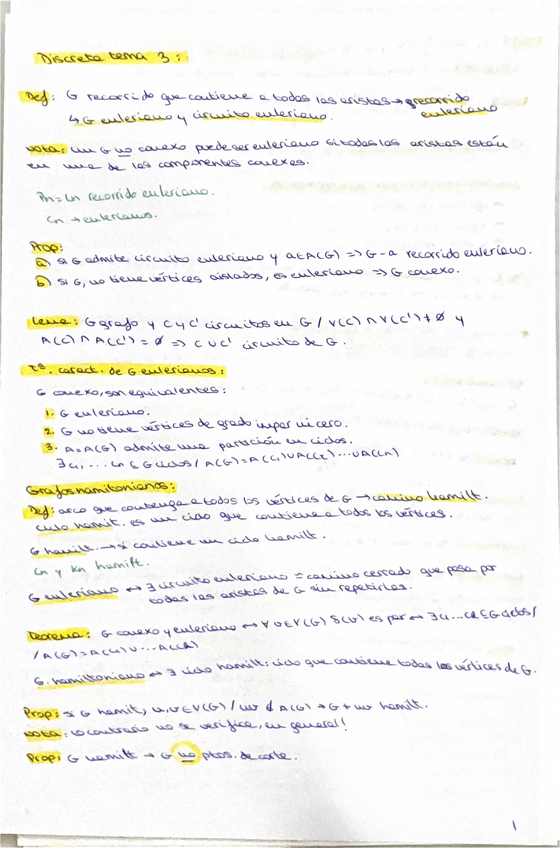 Discreta tema 3:
Def: G recorrido que contiene a todas las aristas → recorrido
euleriano
↳ G euleriano y circuito euleriano.
Nota: un G no conexo puede ser euleriano si todas las aristas están
en una de las componentes conexas.
Pn = un recorrido euleriano.
Cn → eulerianos.
Prop:
a) si G admite circuito euleriano y a∈A(G) => G-a recorrido euleriano.
b) si G, no tiene vértices aislados, es euleriano => G conexo.
Lema: G grafo y C y C' circuitos en G / V(C) ∩ V(C') ≠ ∅ y
A(C) ∩ A(C') = ∅ => C ∪ C' circuito de G.
Tª. caract. de G eulerianos:
G conexo, son equivalentes:
1. G euleriano.
2. G no tiene vértices de grado impar ni cero.
3. A=A(G) admite una partición en ciclos.
∃ c1, ... cn ∈ G ciclos / A(G)=A(c1)∪A(c2)...∪A(cn)
Grafos hamiltonianos:
Def: arco que contenga a todos los vértices de G → camino hamilt.
ciclo hamilt. es un ciso que contiene a todos los vértices.
G hamilt. → si contiene un ciclo hamilt.
Cn y Kn hamilt.
G euleriano ↔ ∃ circuito euleriano = camino cerrado que pasa por
todas las aristas de G sin repetirlas.
Teorema: G conexo y euleriano ↔ ∀ v∈V(G) δ(v) es par ↔ ∃ c1...ck ∈ G ciclos/
/ A(G)=A(c1)∪...A(ck)
G. hamiltoniano ↔ ∃ ciclo hamilt: ciclo que contiene todas los vértices de G.
Prop: si G hamilt, u,v∈V(G) / uv ∉ A(G) → G + uv hamilt.
Nota: lo contrario no se verifica, en general!
Prop: G hamilt → G no ptos. de corte.
1